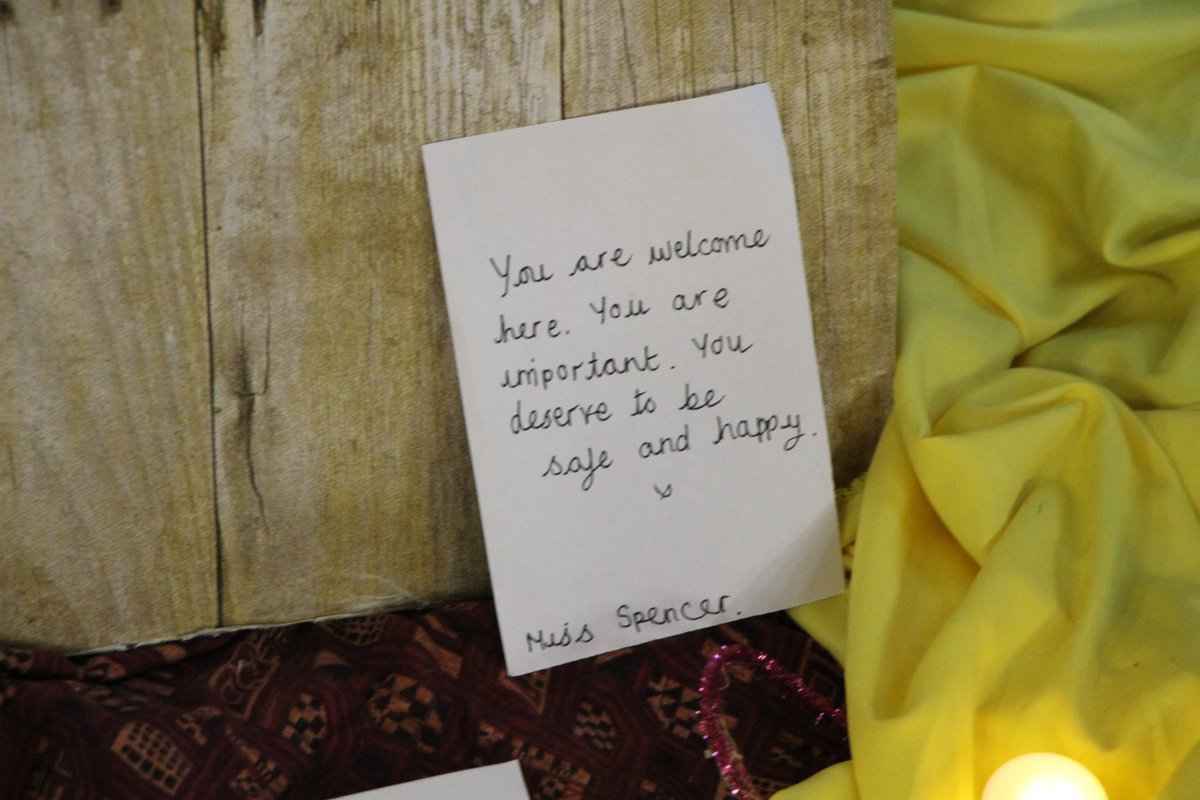 You are welcome
here. You are
important. You
deserve to be
safe and happy.
x
Miss Spencer.